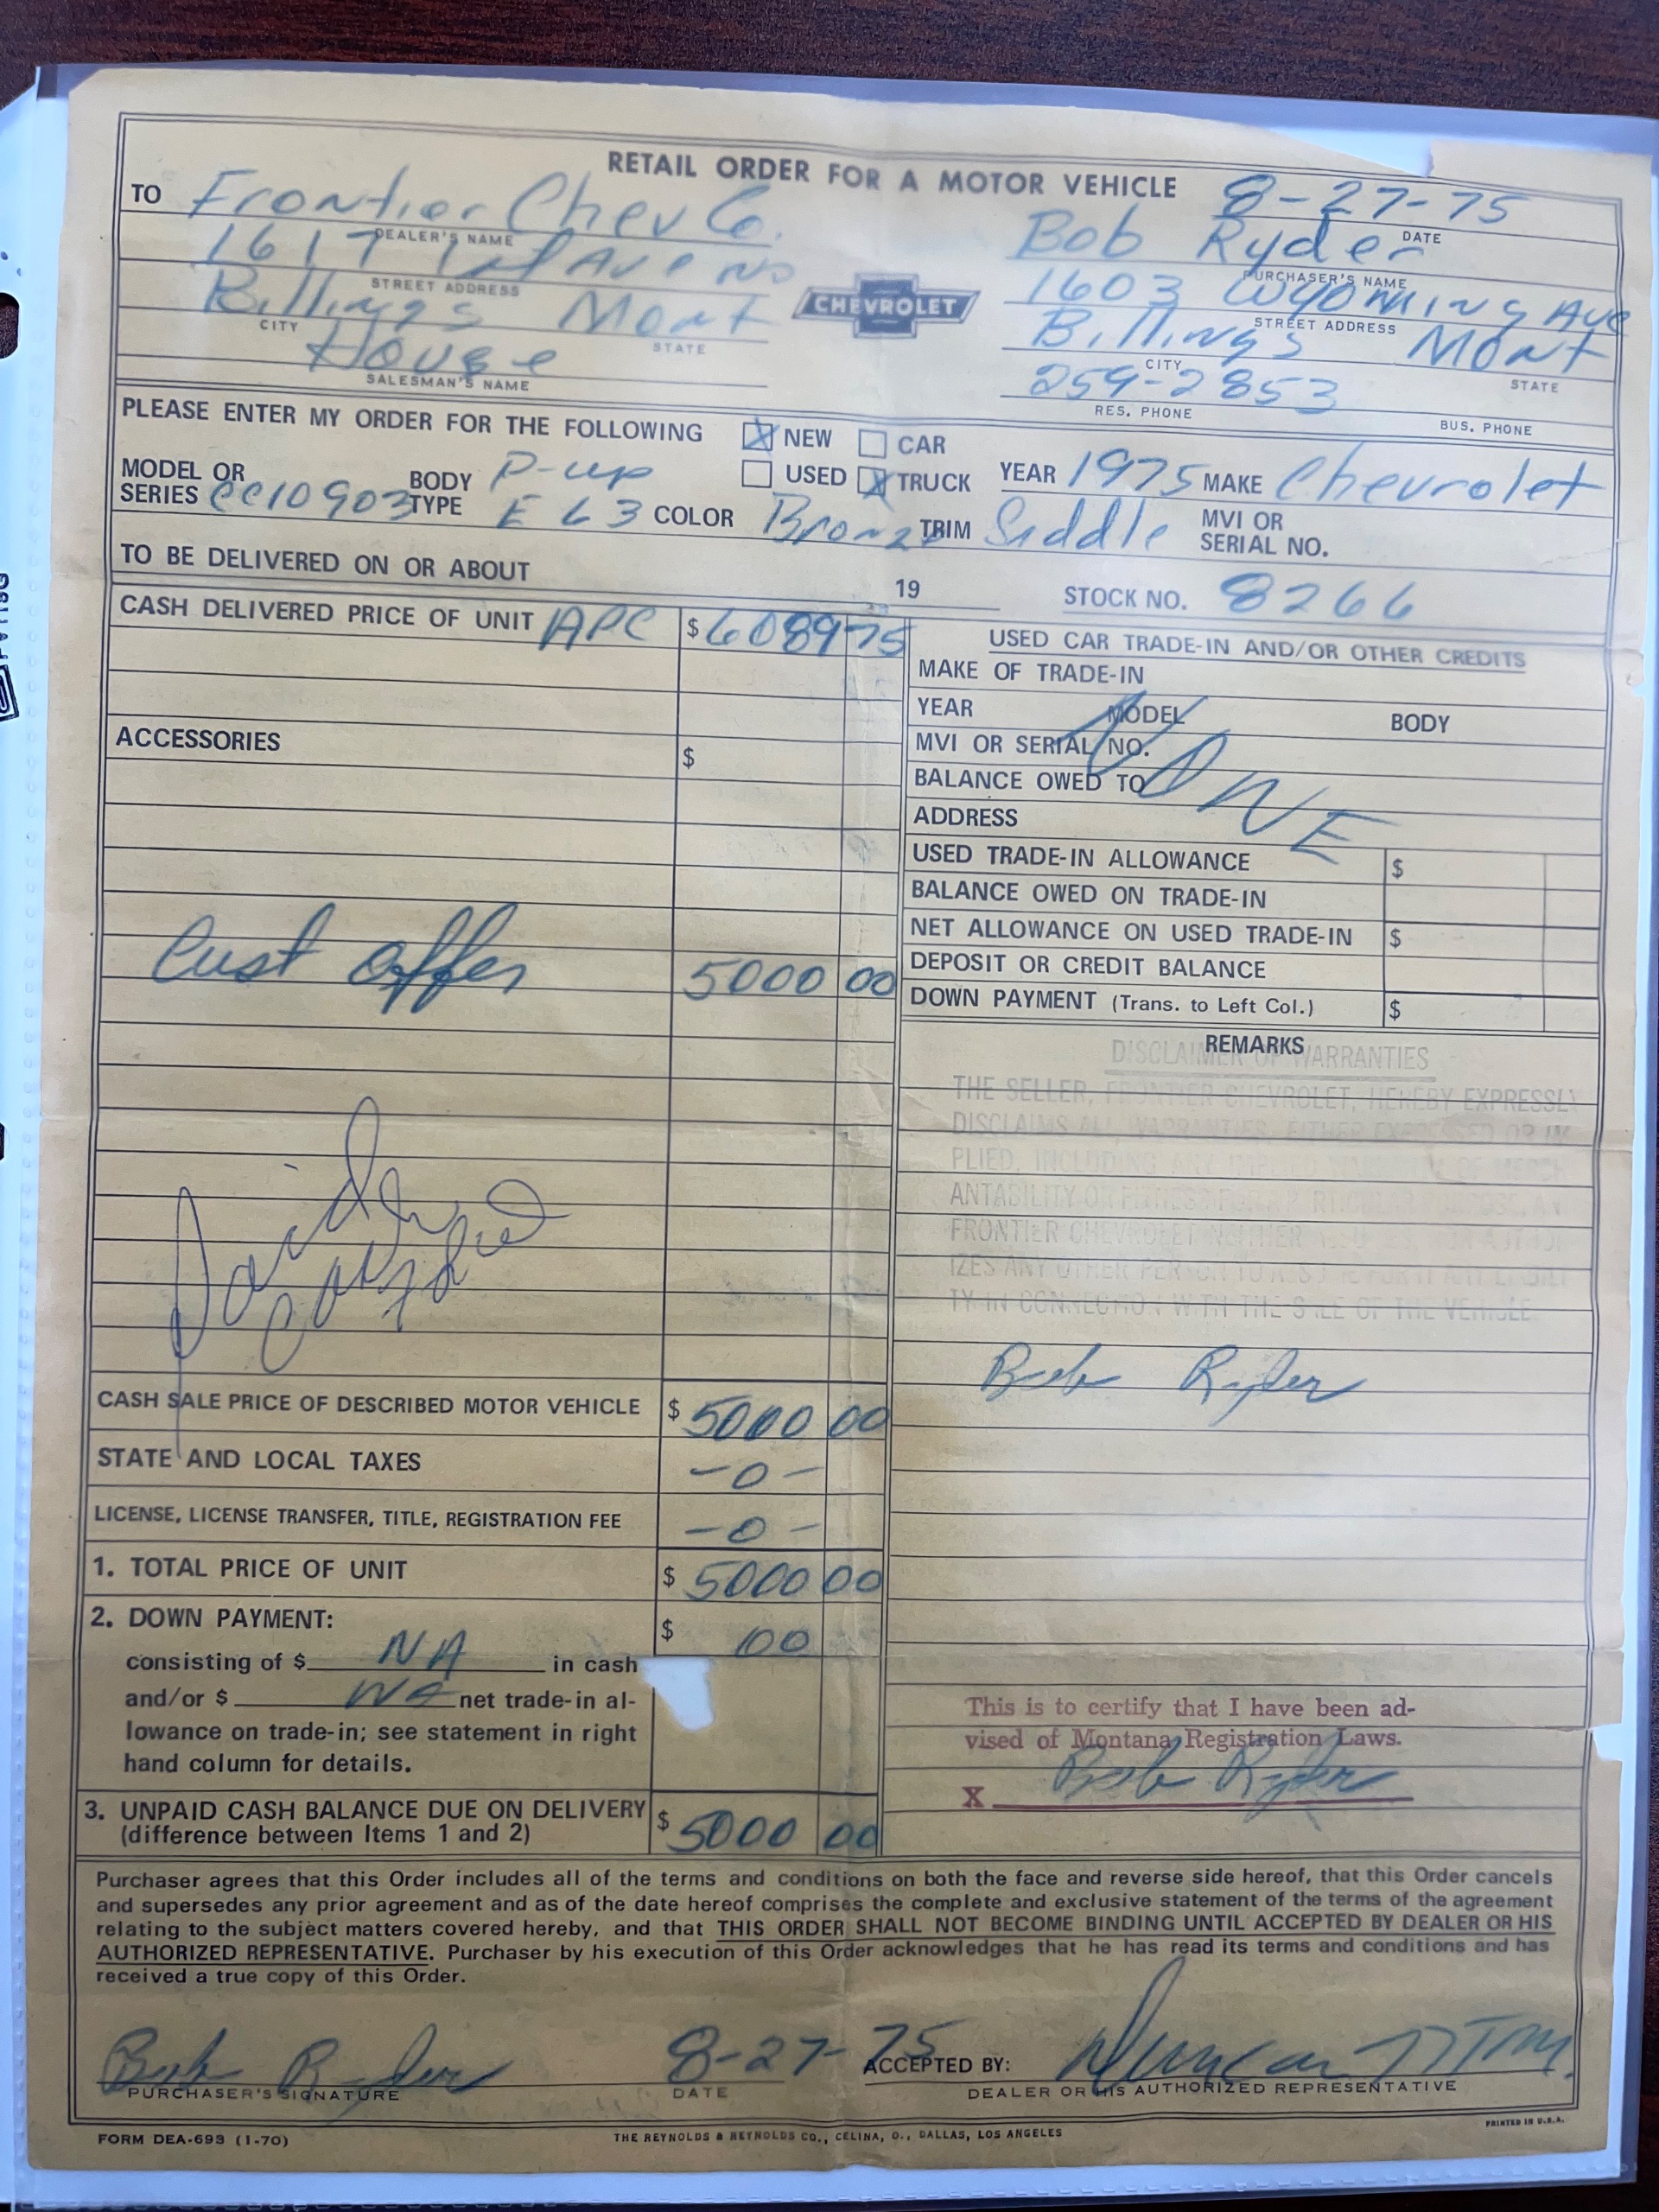 RETAIL ORDER FOR A MOTOR VEHICLE
8-27-75
DATE
TO Frontier Chev Co.
DEALER'S NAME
1617 1st Ave No
STREET ADDRESS
Billings Mont
CITY STATE
House
SALESMAN'S NAME
CHEVROLET
Bob Ryder
PURCHASER'S NAME
1603 Wyoming Ave
STREET ADDRESS
Billings Mont
CITY STATE
259-2853
RES. PHONE BUS. PHONE
PLEASE ENTER MY ORDER FOR THE FOLLOWING X NEW CAR
USED X TRUCK YEAR 1975 MAKE Chevrolet
MODEL OR SERIES CC10903 BODY TYPE P-up E63 COLOR Bronze TRIM Saddle MVI OR SERIAL NO.
TO BE DELIVERED ON OR ABOUT 19 STOCK NO. 8266
CASH DELIVERED PRICE OF UNIT APC $ 6089 75
ACCESSORIES $
Cust offer 5000 00
CASH SALE PRICE OF DESCRIBED MOTOR VEHICLE $ 5000 00
STATE AND LOCAL TAXES -0-
LICENSE, LICENSE TRANSFER, TITLE, REGISTRATION FEE -0-
1. TOTAL PRICE OF UNIT $ 5000 00
2. DOWN PAYMENT: $ 00
consisting of $ NA in cash
and/or $ NA net trade-in al-
lowance on trade-in; see statement in right
hand column for details.
3. UNPAID CASH BALANCE DUE ON DELIVERY $ 5000 00
(difference between Items 1 and 2)
USED CAR TRADE-IN AND/OR OTHER CREDITS
MAKE OF TRADE-IN
YEAR MODEL BODY
MVI OR SERIAL NO.
NONE
BALANCE OWED TO
ADDRESS
USED TRADE-IN ALLOWANCE $
BALANCE OWED ON TRADE-IN
NET ALLOWANCE ON USED TRADE-IN $
DEPOSIT OR CREDIT BALANCE
DOWN PAYMENT (Trans. to Left Col.) $
REMARKS
DISCLAIMER OF WARRANTIES
THE SELLER, FRONTIER CHEVROLET, HEREBY EXPRESSLY
DISCLAIMS ALL WARRANTIES, EITHER EXPRESSED OR IM
PLIED, INCLUDING ANY IMPLIED WARRANTY OF MERCH
ANTABILITY OR FITNESS FOR A
FRONTIER CHEVROLET NEITHER
IZES ANY OTHER PERSON TO ASSUME FOR IT ANY LIABILI
TY IN CONNECTION WITH THE SALE OF THE VEHICLE
Bob Ryder
This is to certify that I have been ad-
vised of Montana Registration Laws.
X Bob Ryder
Purchaser agrees that this Order includes all of the terms and conditions on both the face and reverse side hereof, that this Order cancels
and supersedes any prior agreement and as of the date hereof comprises the complete and exclusive statement of the terms of the agreement
relating to the subject matters covered hereby, and that THIS ORDER SHALL NOT BECOME BINDING UNTIL ACCEPTED BY DEALER OR HIS
AUTHORIZED REPRESENTATIVE. Purchaser by his execution of this Order acknowledges that he has read its terms and conditions and has
received a true copy of this Order.
Bob Ryder 8-27-75 ACCEPTED BY: Duncan
PURCHASER'S SIGNATURE DATE DEALER OR HIS AUTHORIZED REPRESENTATIVE
FORM DEA-693 (1-70) THE REYNOLDS & REYNOLDS CO., CELINA, O., DALLAS, LOS ANGELES PRINTED IN U.S.A.